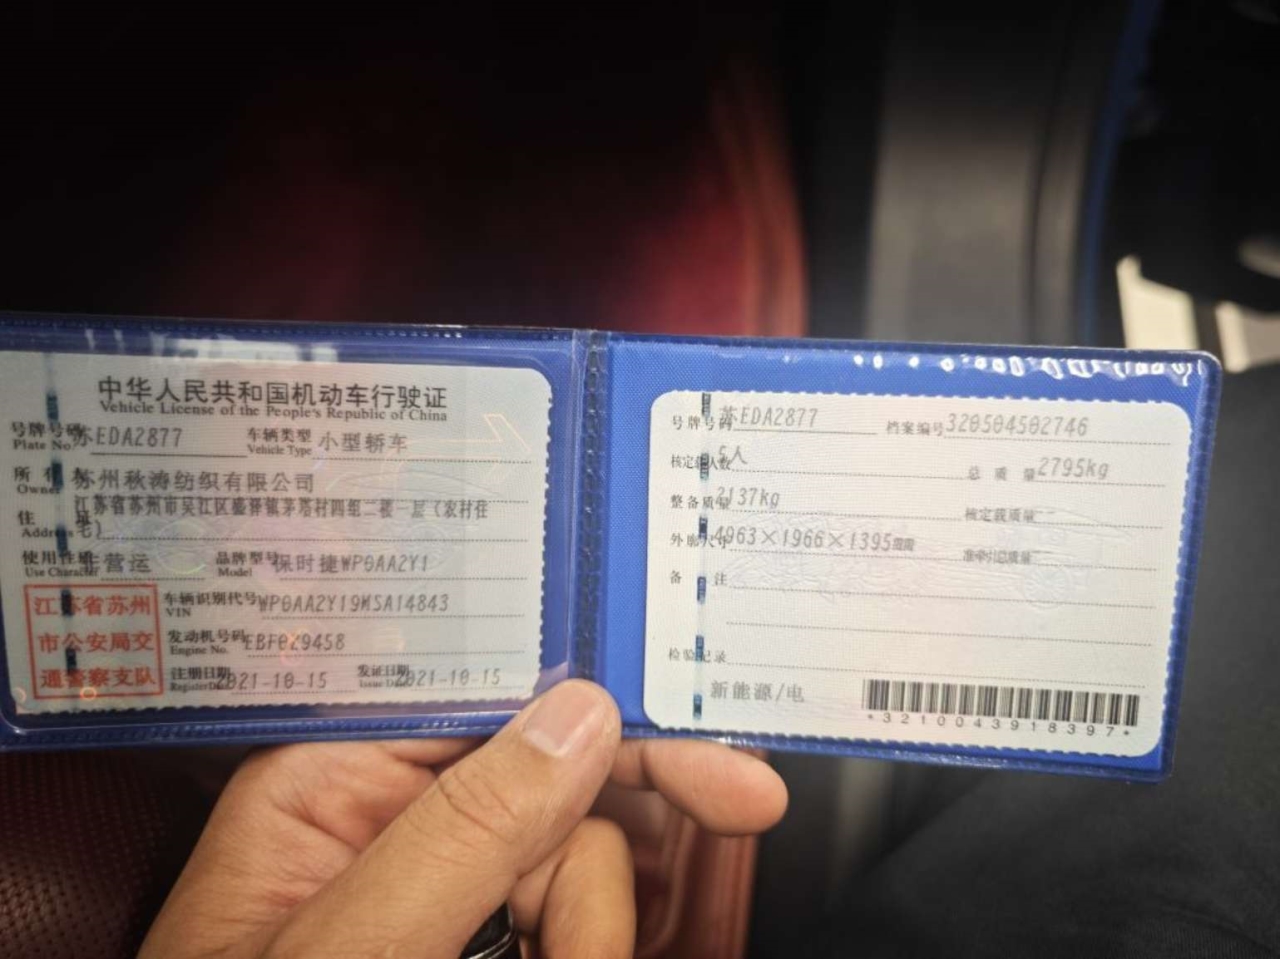 中华人民共和国机动车行驶证
Vehicle License of the People's Republic of China
号牌号码 苏EDA2877 车辆类型 小型轿车
Plate No. Vehicle Type
所有人 苏州秋涛纺织有限公司
Owner
住址 江苏省苏州市吴江区盛泽镇茅塔村四组二楼一层（农村住
Address 宅）
使用性质 非营运 品牌型号 保时捷WP0AA2Y1
Use Character Model
江苏省苏州
市公安局交
通警察支队
车辆识别代号 WP0AA2Y19MSA14843
VIN
发动机号码 EBF029458
Engine No.
注册日期 2021-10-15 发证日期 2021-10-15
Register Date Issue Date
号牌号码 苏EDA2877 档案编号 320504502746
核定载人数 5人 总质量 2795kg
整备质量 2137kg 核定载质量 --
外廓尺寸 4963×1966×1395mm 准牵引总质量 --
备注
检验记录
新能源/电
*3210043918397*